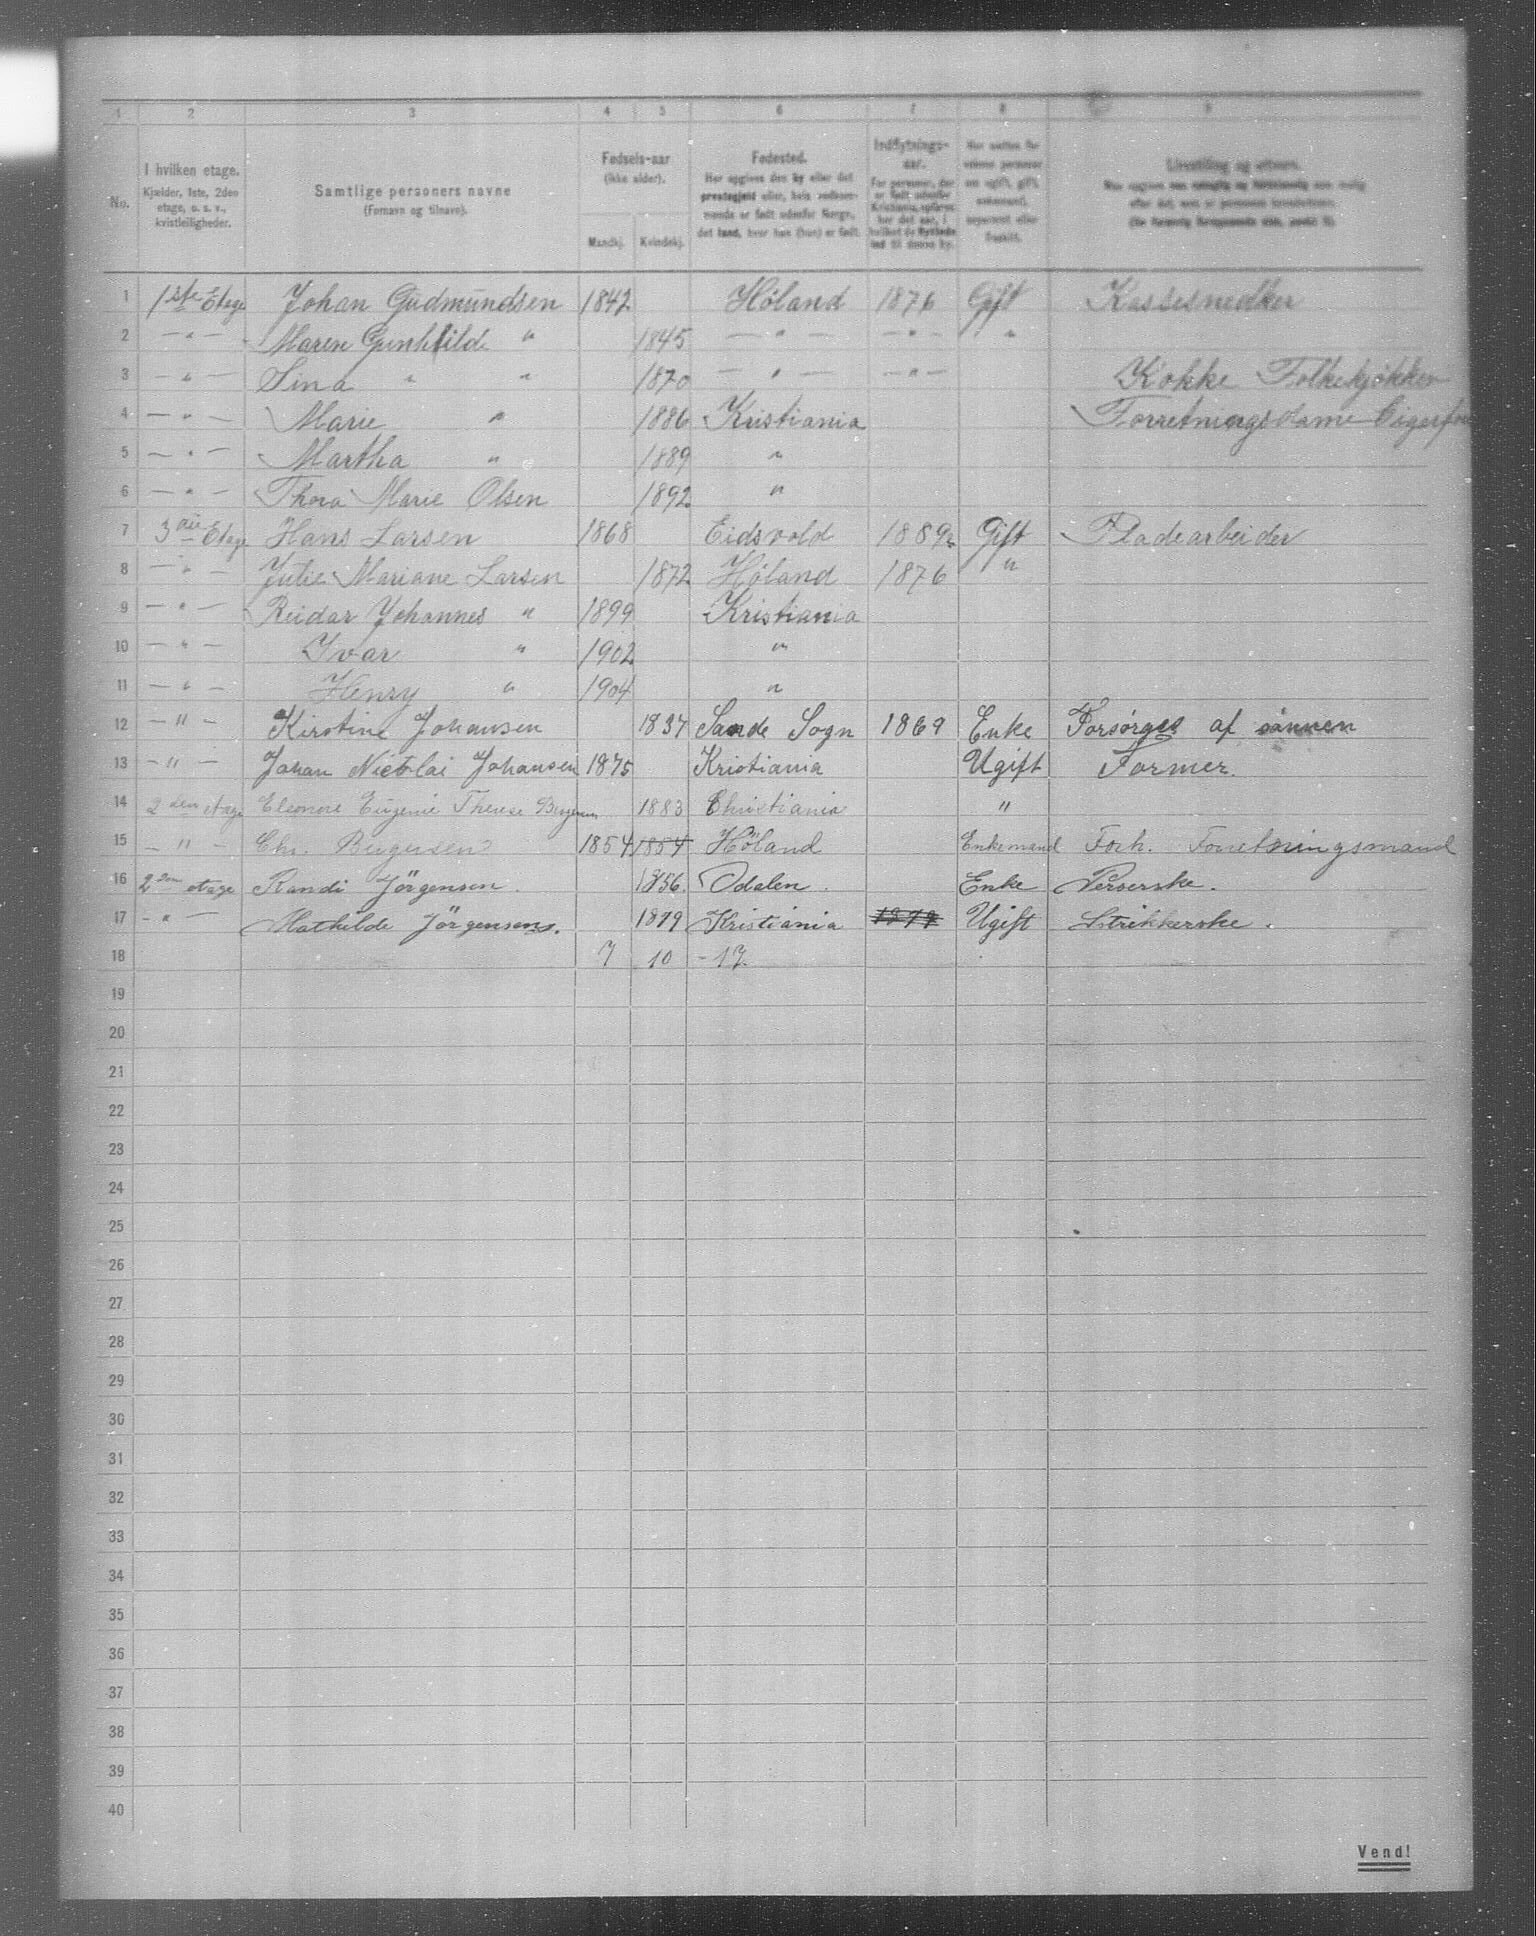 1 2 3 4 5 6 7 8 9
No. I hvilken etage. Kjælder, 1ste, 2den etage, o. s. v., kvistleiligheder. Samtlige personers navne (Fornavn og tilnavn). Fødsels-aar (ikke alder). Mandkj. Kvindekj. Fødested. Her opgives den by eller det prestegjeld eller, hvis vedkommende er født udenfor Norge, det land, hvor han (hun) er født. Indflytnings-aar. For personer, der er født udenfor Kristiania, opføres her det aar, i hvilket de flyttede ind til denne by.
1 1ste Etage Johan Gudmundsen 1842 Høland 1876 Gift Kassesnedker
2 — " — Maren Gunhilde " 1845 — " — — " — "
3 — " — Sina " " 1870 — " — — " — Kokke Folkekjøkken
4 — " — Marie " 1886 Kristiania Forretningsdame
5 — " — Martha " 1889 "
6 — " — Thora Marie Olsen 1892 "
7 3die Etage Hans Larsen 1868 Eidsvold 1889 Gift Pladearbeider
8 — " — Julie Mariane Larsen 1872 Høland 1876 "
9 — " — Reidar Johannes " 1899 Kristiania
10 — " — Ivar " 1902 "
11 — " — Henry " 1904 "
12 — " — Kirstine Johansen 1837 Sande Sogn 1869 Enke Forsørges af sønnen
13 — " — Johan Nicolai Johansen 1875 Kristiania Ugift Former.
14 2den etage Eleonore Eugenie Therese 1883 Christiania "
15 — " — Chr. Bergersen 1854 1854 Høland Enkemand Forh. Forretningsmand
16 2den etage Randi Jörgensen. 1856. Odalen. Enke Perserske.
17 — " — Mathilde Jörgensen. 1879 Kristiania Ugift Strikkerske.
18 7 10 - 17.
19
20
21
22
23
24
25
26
27
28
29
30
31
32
33
34
35
36
37
38
39
40
Vend!